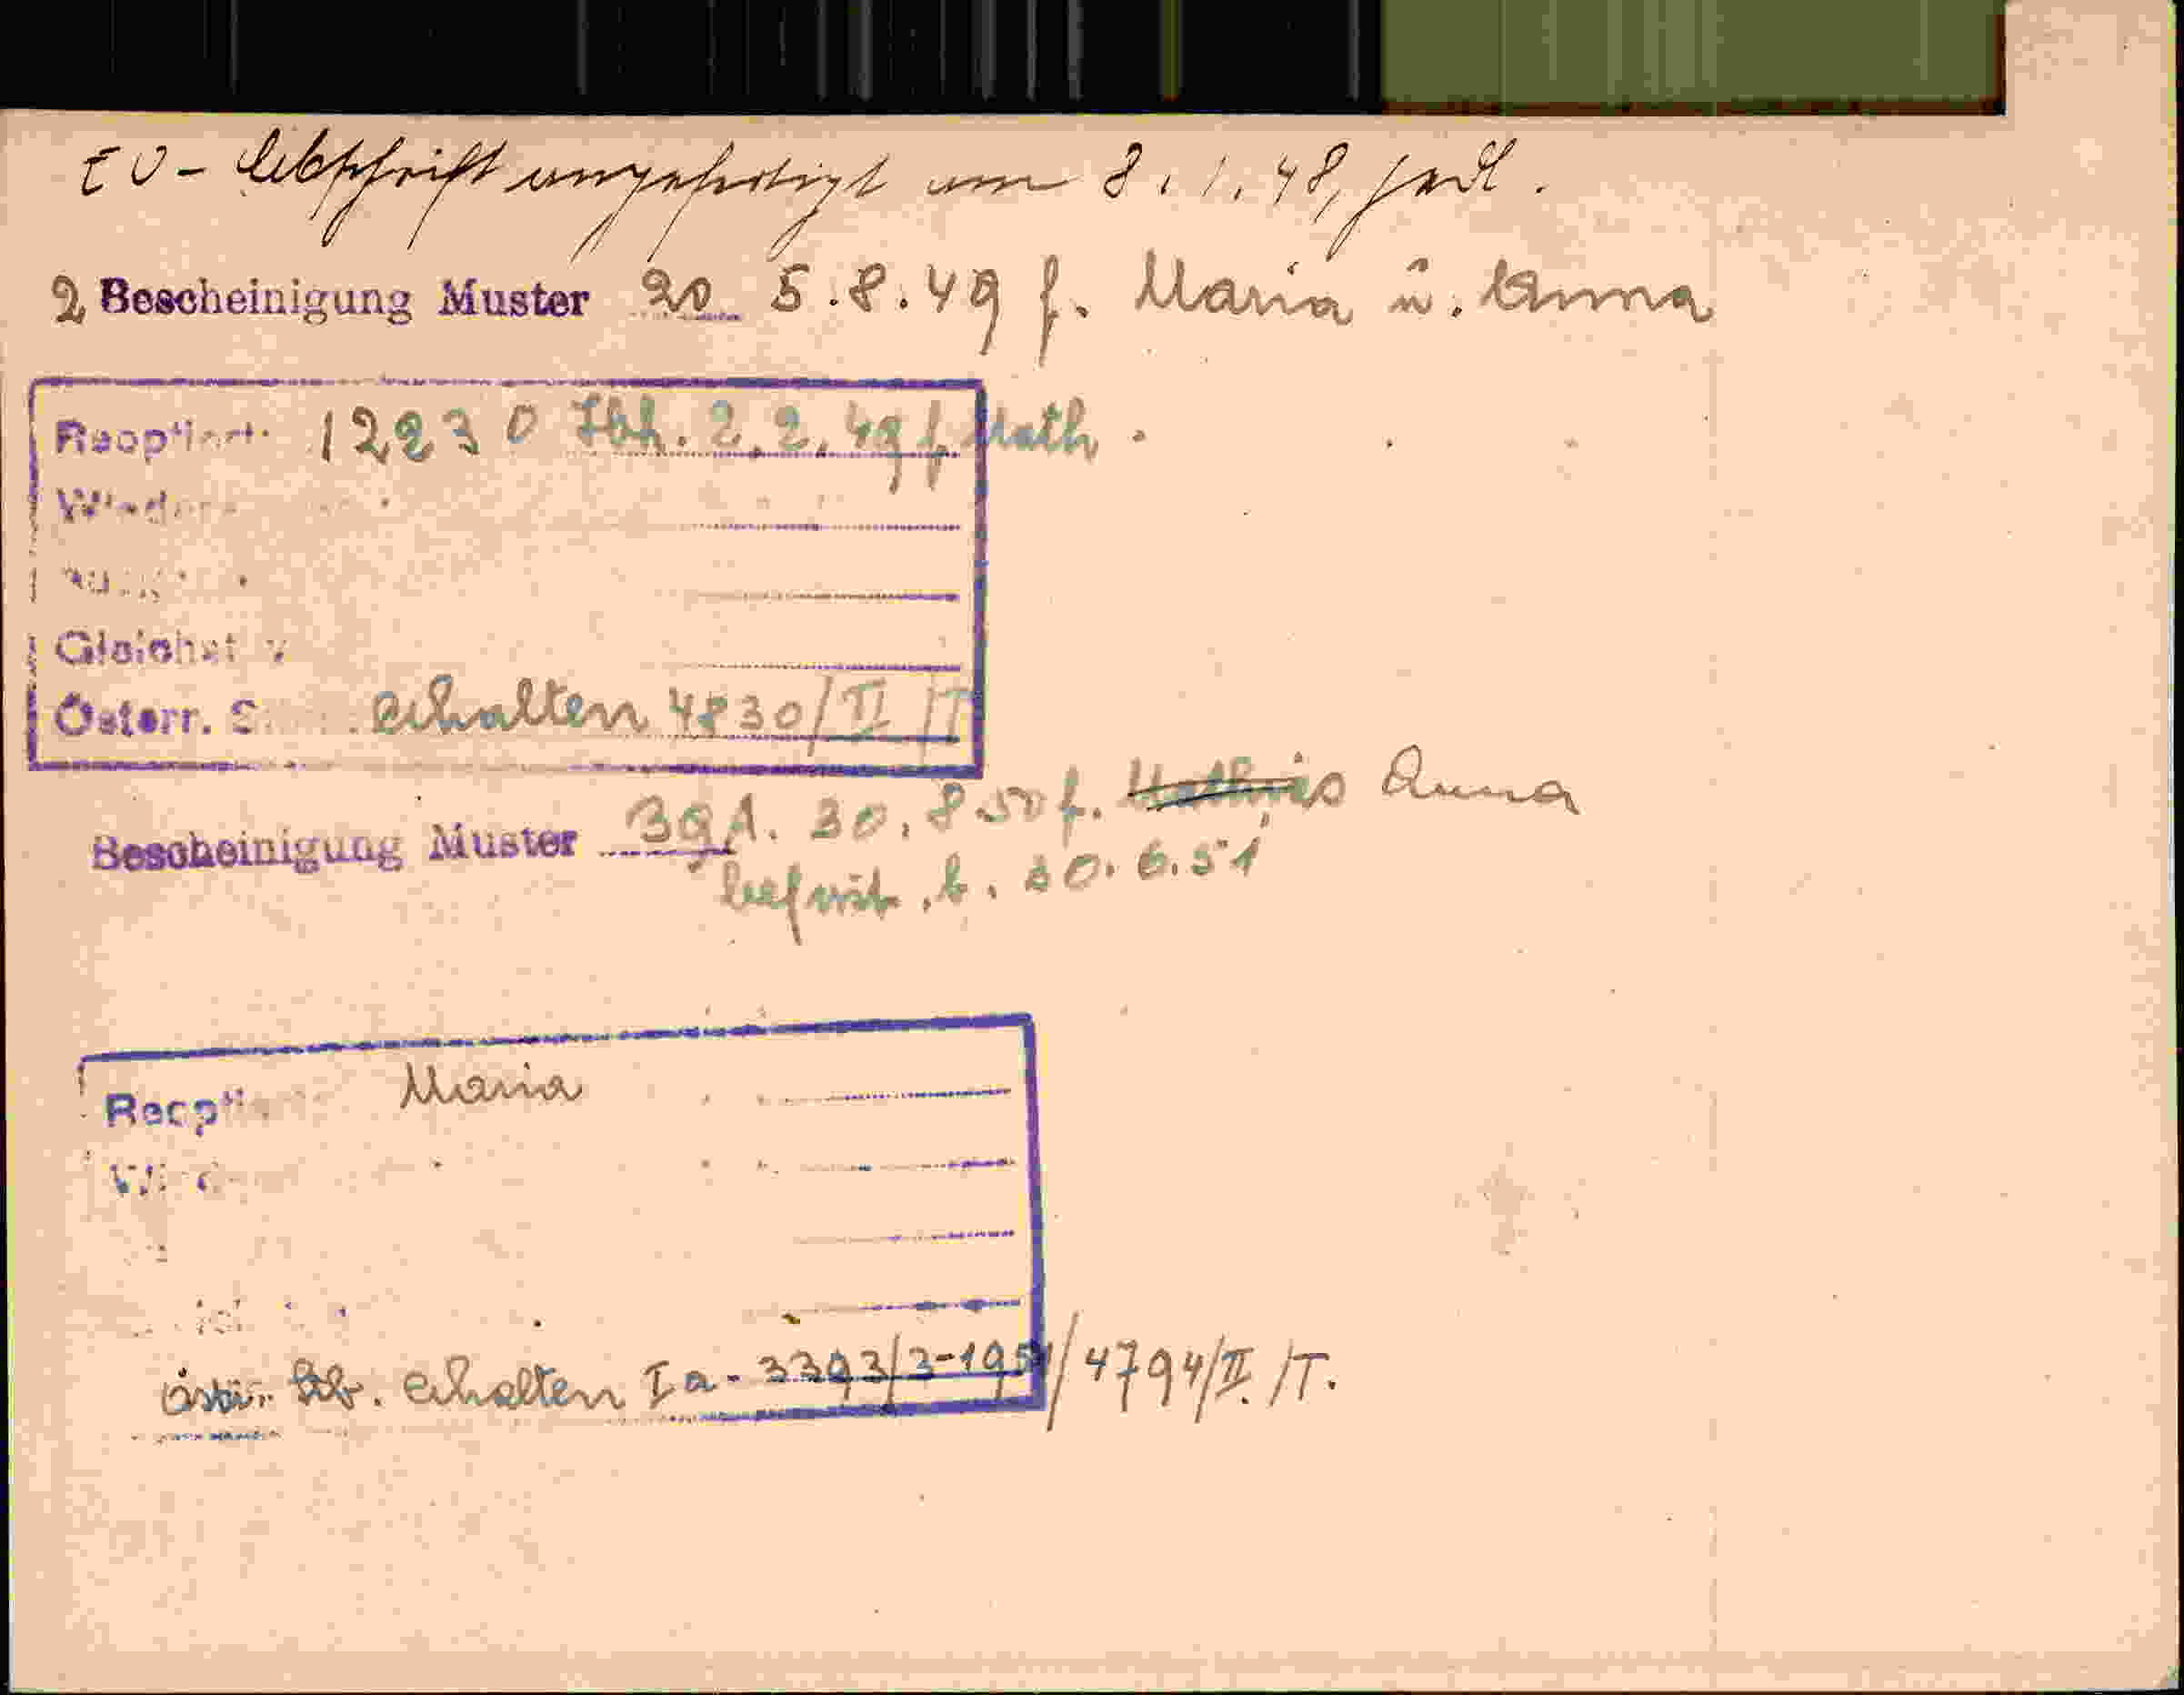 EU - Abschrift angefertigt am 8.1.48,
2 Bescheinigung Muster 20 5.8.49 f. Maria u. Anna
Reoptiert 12230 Ibk. 2.2.49 f Math.
Gleichst
Österr. S erhalten 4830/II/T
Bescheinigung Muster 39A. 30.8.50 f. Mathias Anna
befrist. b. 30.6.51
Maria
österr. Stb. erhalten Ia- 3393/3-1951/4794/II./T.